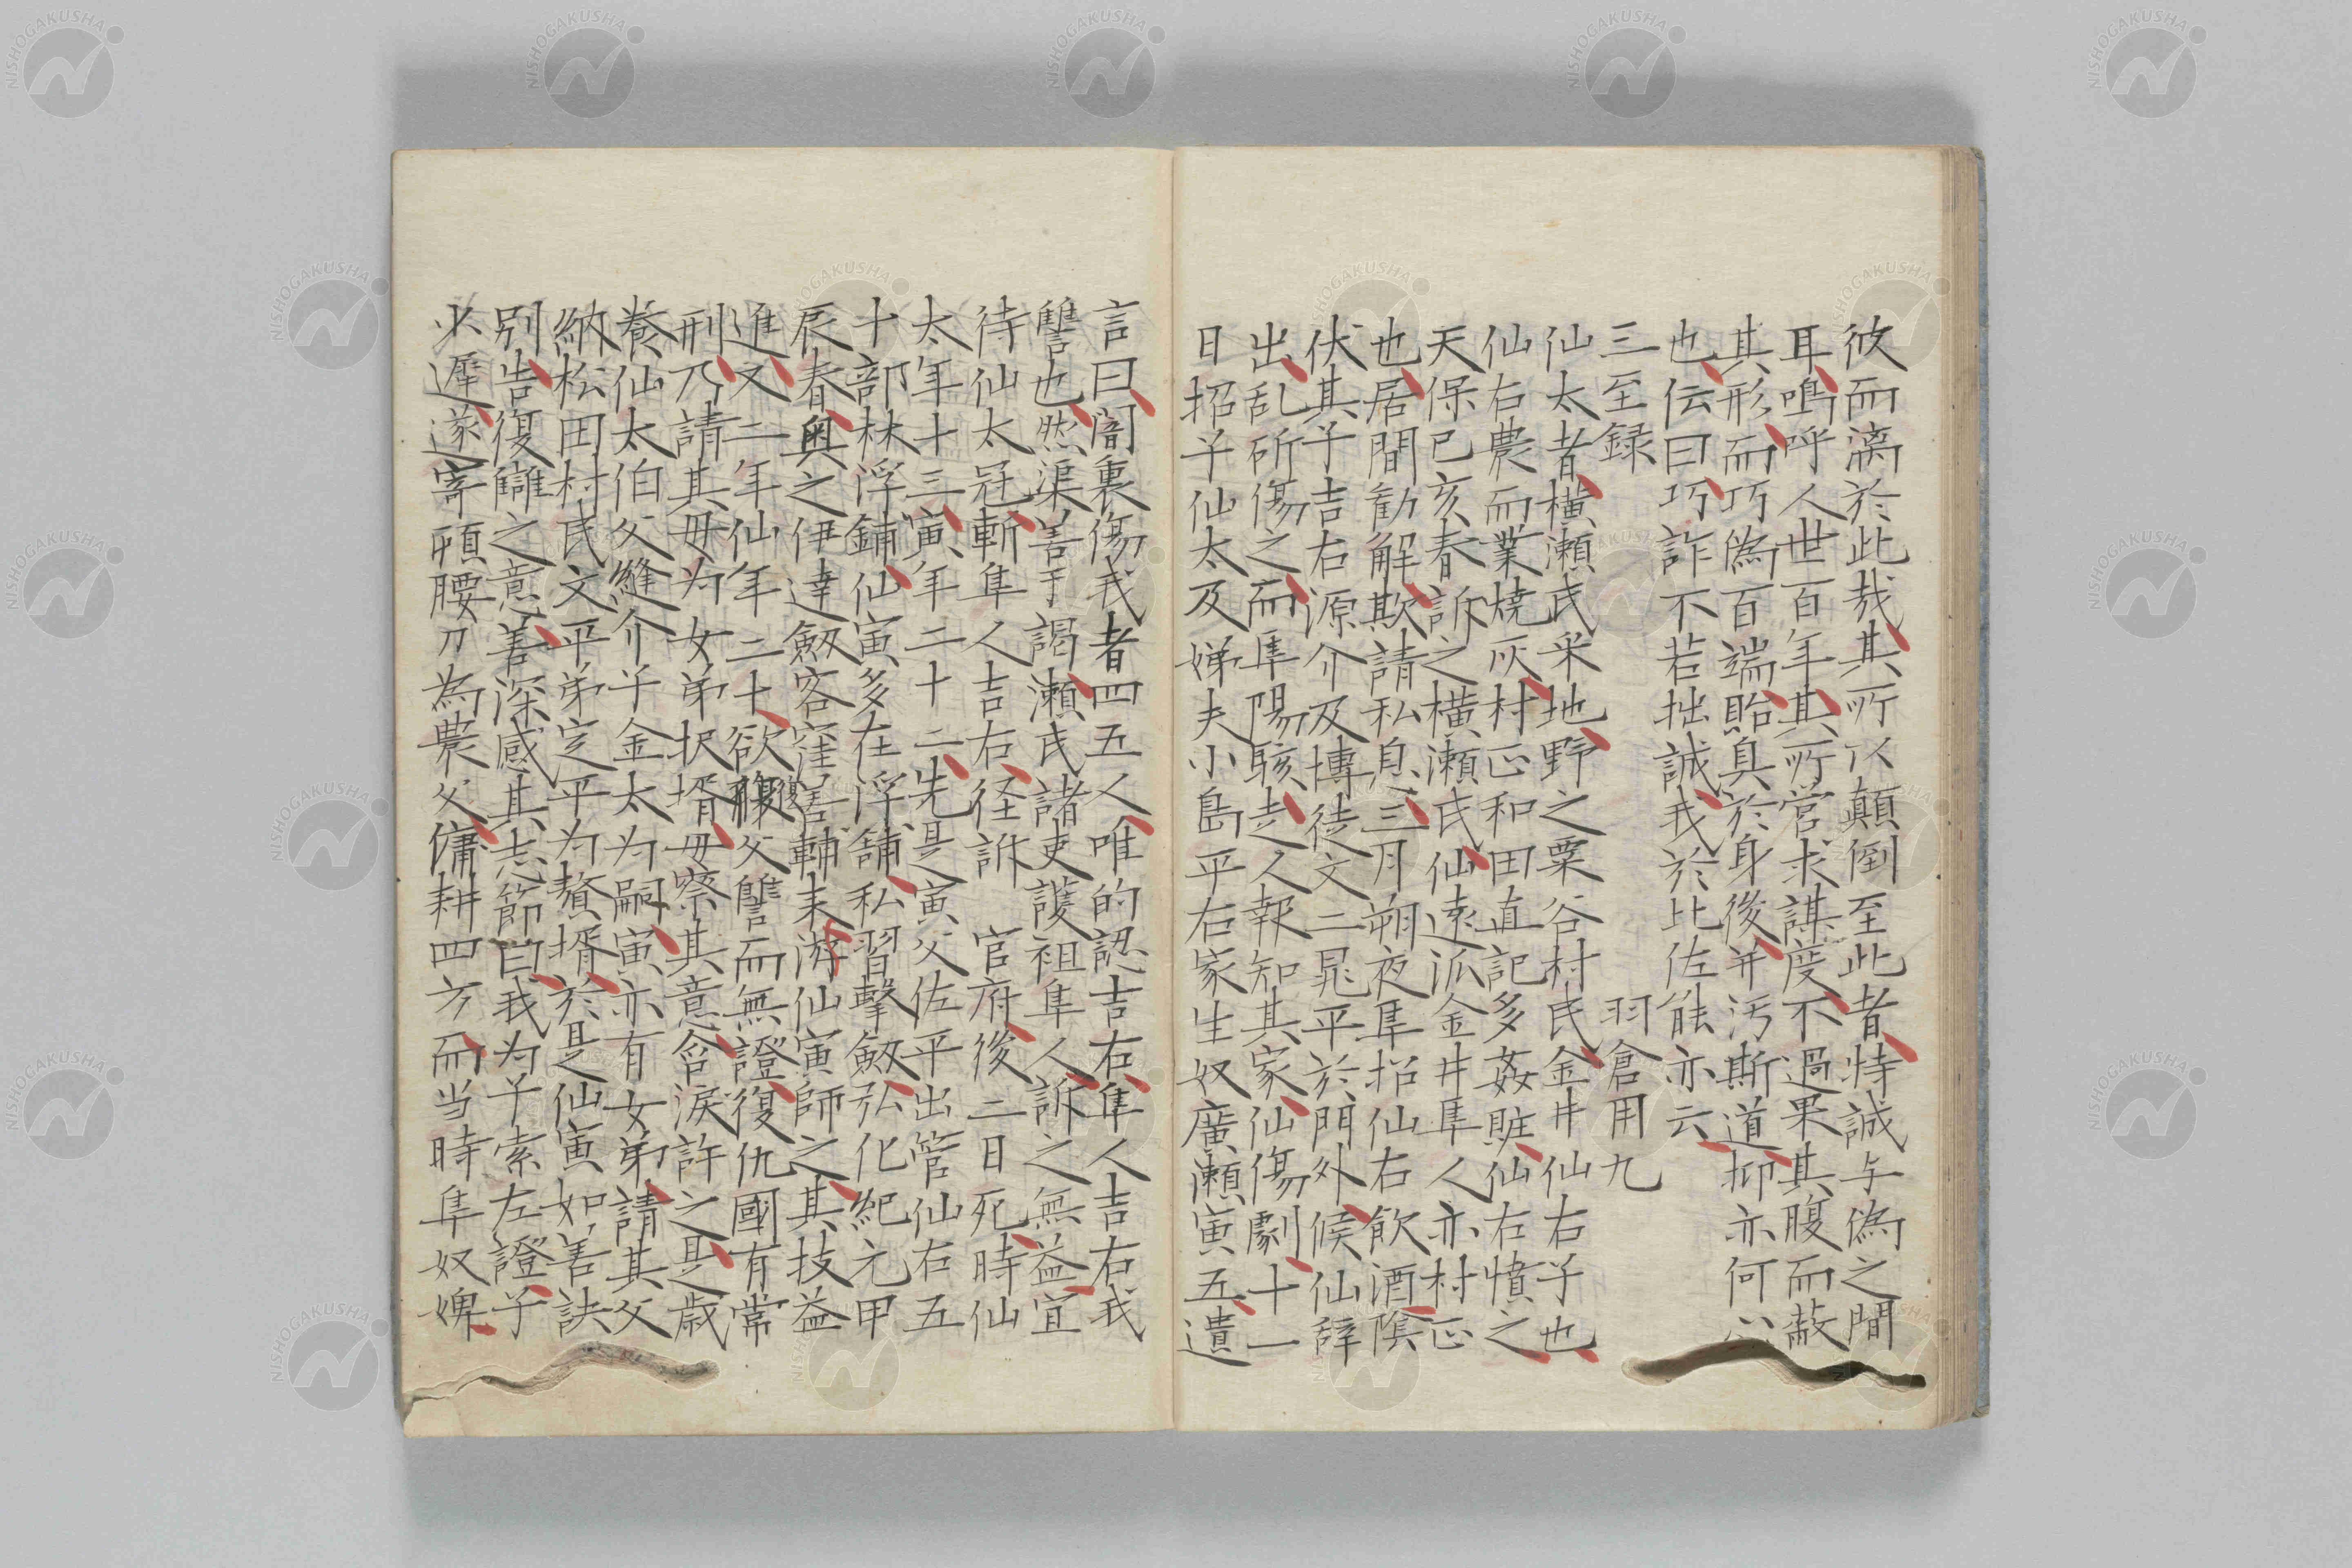 彼而漓於此哉其所以顛倒至此者恃誠与偽之間
耳嗚呼人世百年其所営求謀度不過果其腹而蔽
其形而巧偽百端貽臭於身後并汚斯道抑亦何心
也伝曰巧詐不若拙誠我於比佐能亦云
三至録 羽倉用九
仙太者横瀬氏采地野之粟谷村民金井仙右子也
仙右農而業焼灰村正和田直記多姦賍仙右憤之
天保己亥春訴之横瀬氏仙遠派金井隼人亦村正
也居間勧解欺請私息三月朔夜隼招仙右飲酒陰
伏其子吉右源介及博徒文二晁平於門外候仙辞
出乱斫傷之而隼陽駭走人報知其家仙傷劇十一
日招子仙太及娣夫小島平右家生奴廣瀬寅五遺
言曰闇裏傷我者四五人唯的認吉右隼人吉右我
讐也然渠善于謁瀬氏諸吏護袒隼人訴之無益宜
待仙太冠斬隼人吉右径訴 官府後二日死時仙
太年十三寅年二十二先是寅父佐平出管仙右五
十部林浮鋪仙寅多在浮舗私習撃劔弘化紀元甲
辰春奥之伊達劔客窪善輔来游仙寅師之其技益
進又二年仙年二十欲復父讐而無證復仇國有常
刑乃請其母为女弟択壻母察其意含涙許之是歳
養仙太伯父縫介子金太为嗣寅亦有女弟請其父
納松田村民文平弟定平为贅壻於是仙寅如善訣
別告復讎之意善深感其志節曰我为子索左證子
少遲遂寄頓腰刀為農父傭耕四方而当時隼奴婢